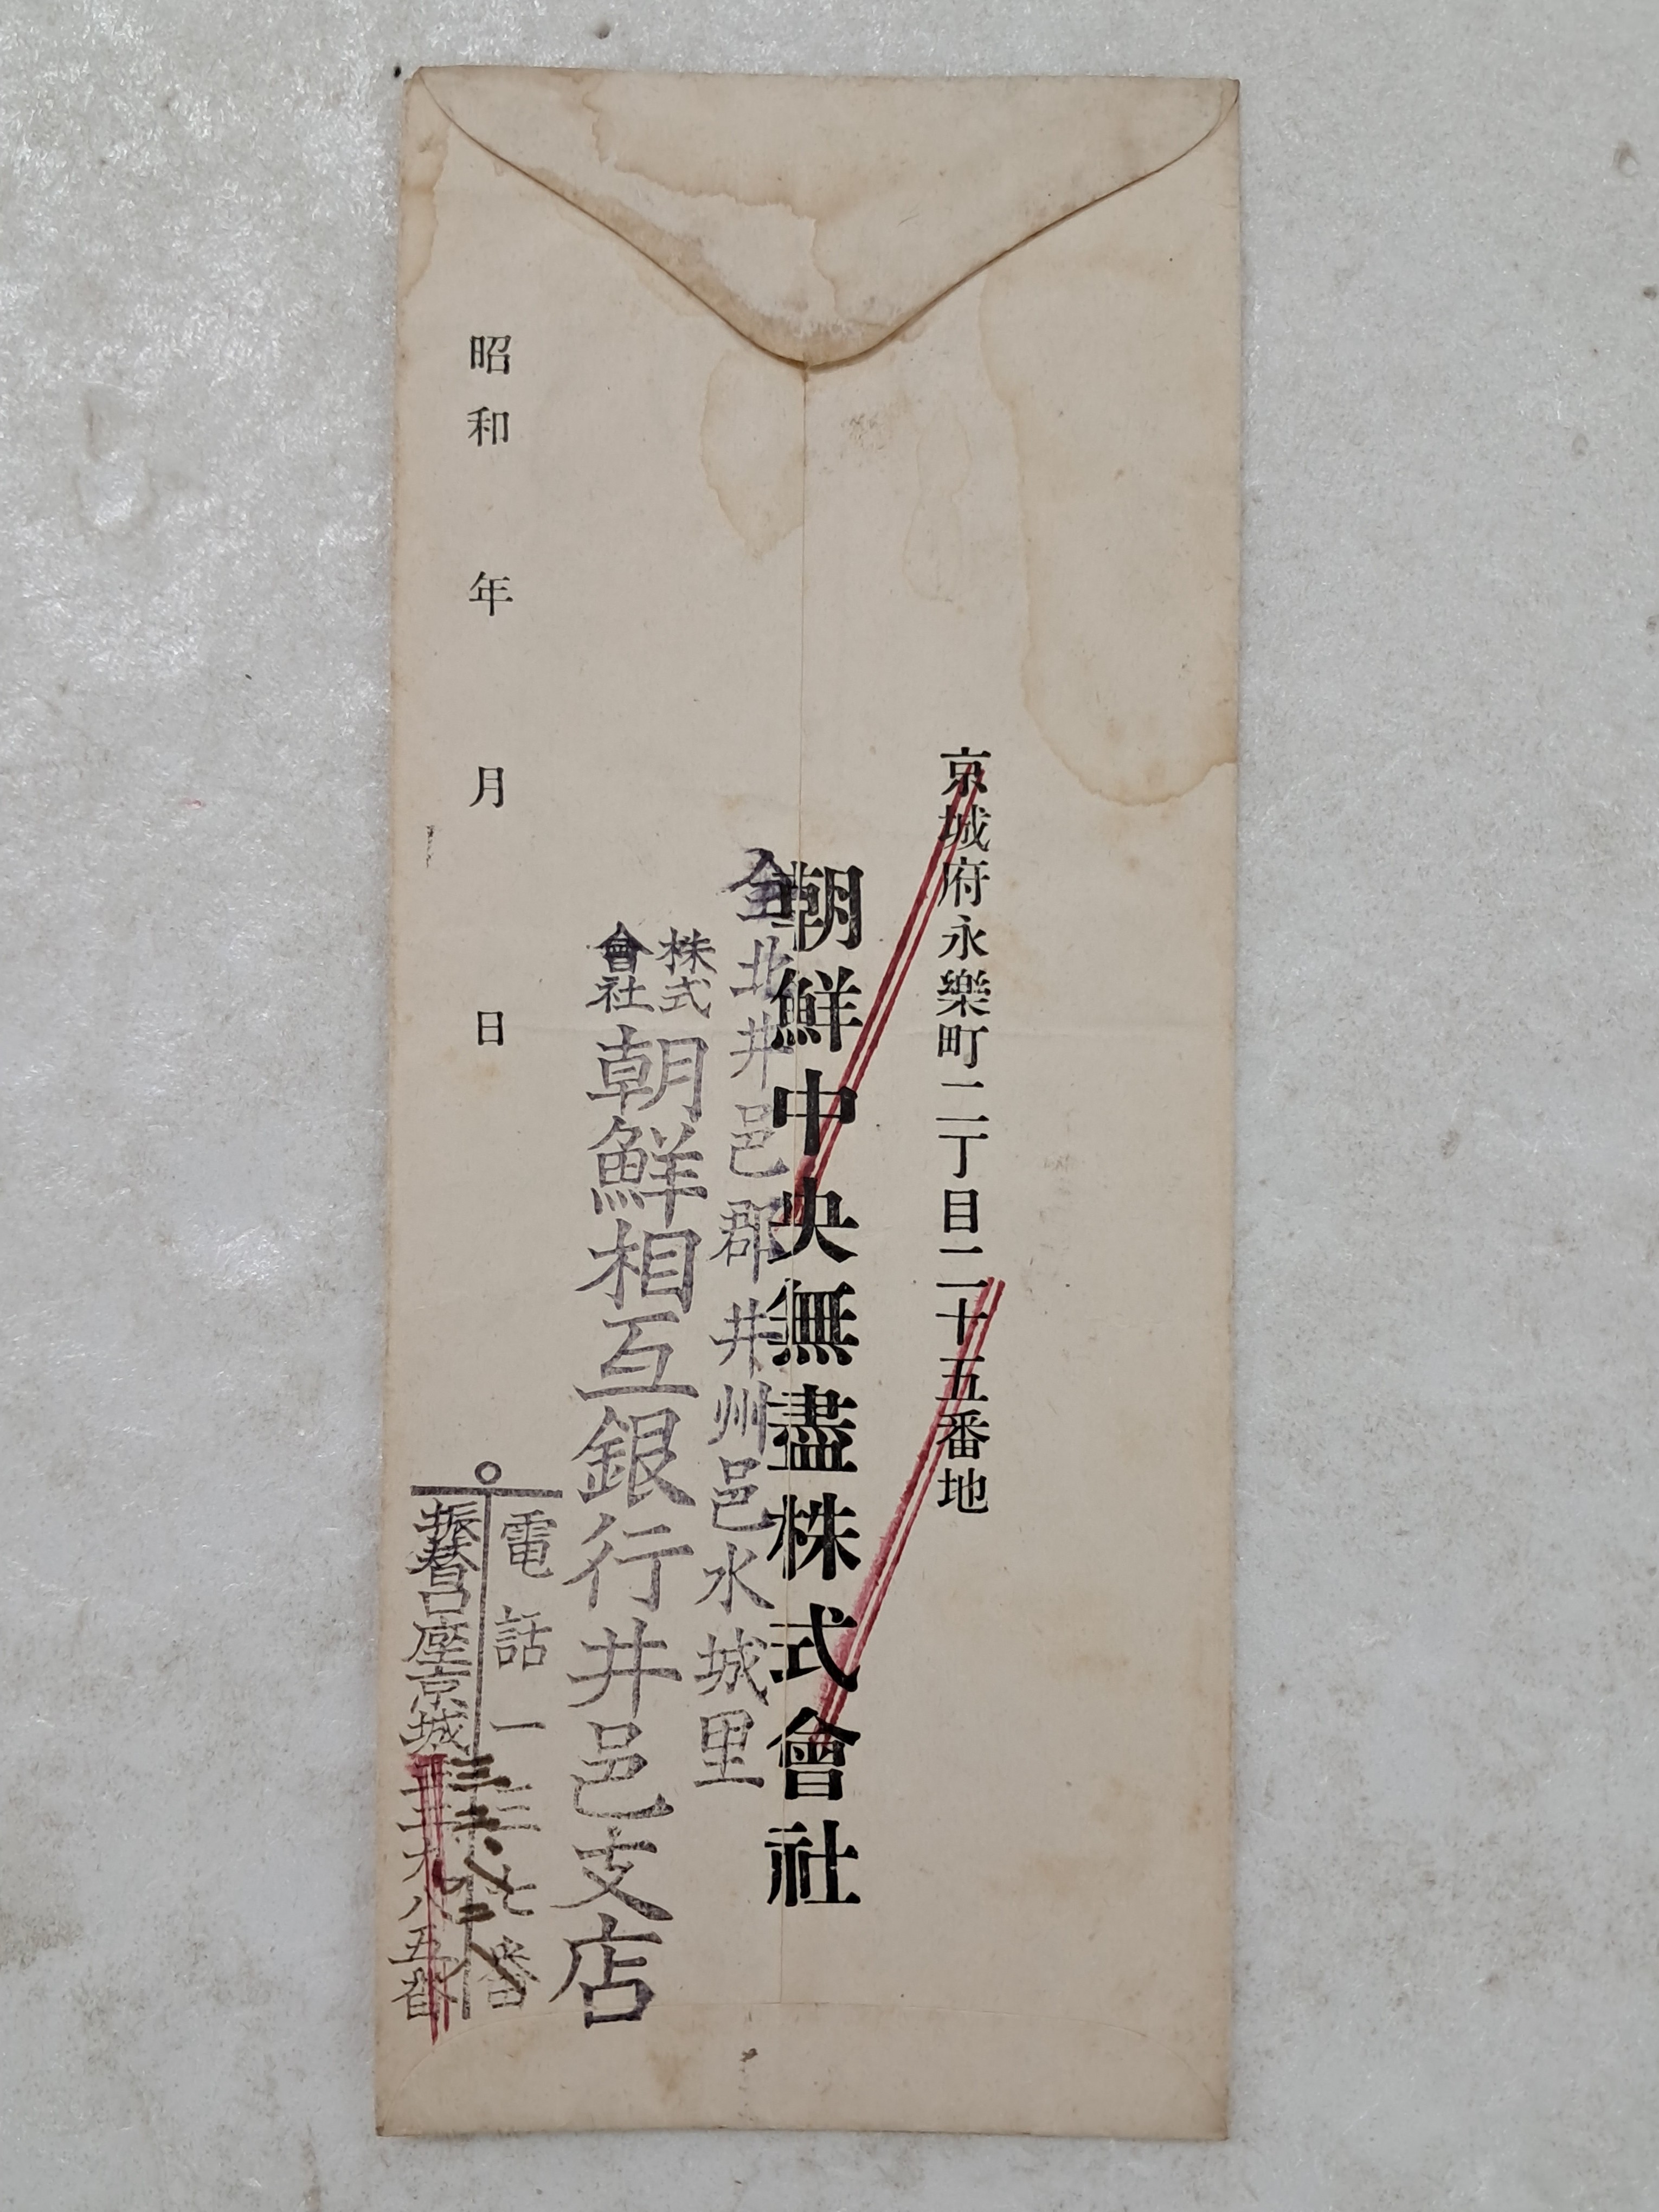 京城府永樂町二丁目二十五番地
朝鮮中央無盡株式會社
全北井邑郡井州邑水城里
株式會社朝鮮相互銀行井邑支店
電話一三七番
振替口座京城
昭和 年 月 日